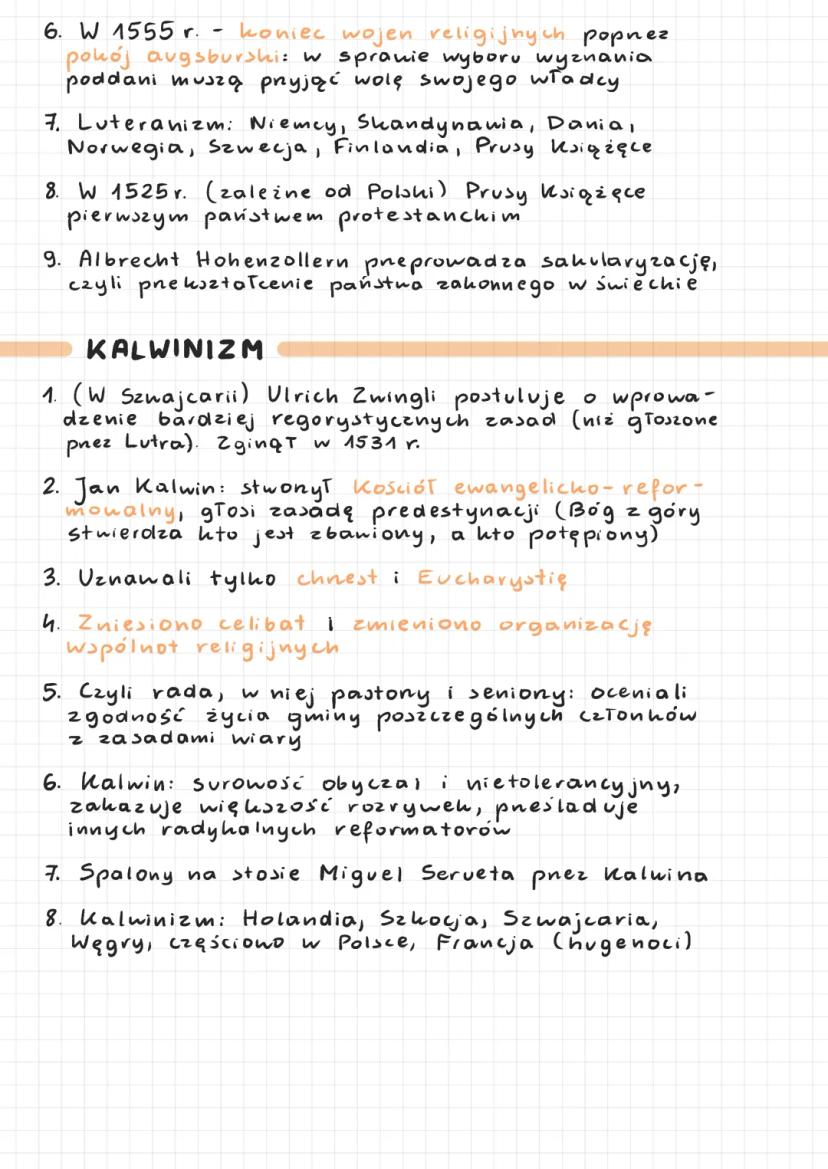 6. W 1555 r. - koniec wojen religijnych poprzez
pokój augsburski: w sprawie wyboru wyznania
poddani muszą przyjąć wolę swojego władcy
7. Luteranizm: Niemcy, Skandynawia, Dania,
Norwegia, Szwecja, Finlandia, Prusy Książęce
8. W 1525 r. (zależne od Polski) Prusy Książęce
pierwszym państwem protestanckim
9. Albrecht Hohenzollern przeprowadza sakularyzację,
czyli przekształcenie państwa zakonnego w świeckie
KALWINIZM
1. (W Szwajcarii) Ulrich Zwingli postuluje o wprowa-
dzenie bardziej regorystycznych zasad (niż głoszone
przez Lutra). Zginął w 1531 r.
2. Jan Kalwin: stworzył Kościół ewangelicko-refor-
mowalny, głosi zasadę predestynacji (Bóg z góry
stwierdza kto jest zbawiony, a kto potępiony)
3. Uznawali tylko chrzest i Eucharystię
4. Zniesiono celibat i zmieniono organizację
wspólnot religijnych
5. Czyli rada, w niej pastorzy i seniorzy: oceniali
zgodność życia gminy poszczególnych członków
z zasadami wiary
6. Kalwin: surowość obyczaj i nietolerancyjny,
zakazuje większość rozrywek, prześladuje
innych radykalnych reformatorów
7. Spalony na stosie Miguel Serveta przez Kalwina
8. Kalwinizm: Holandia, Szkocja, Szwajcaria,
Węgry, częściowo w Polsce, Francja (hugenoci)